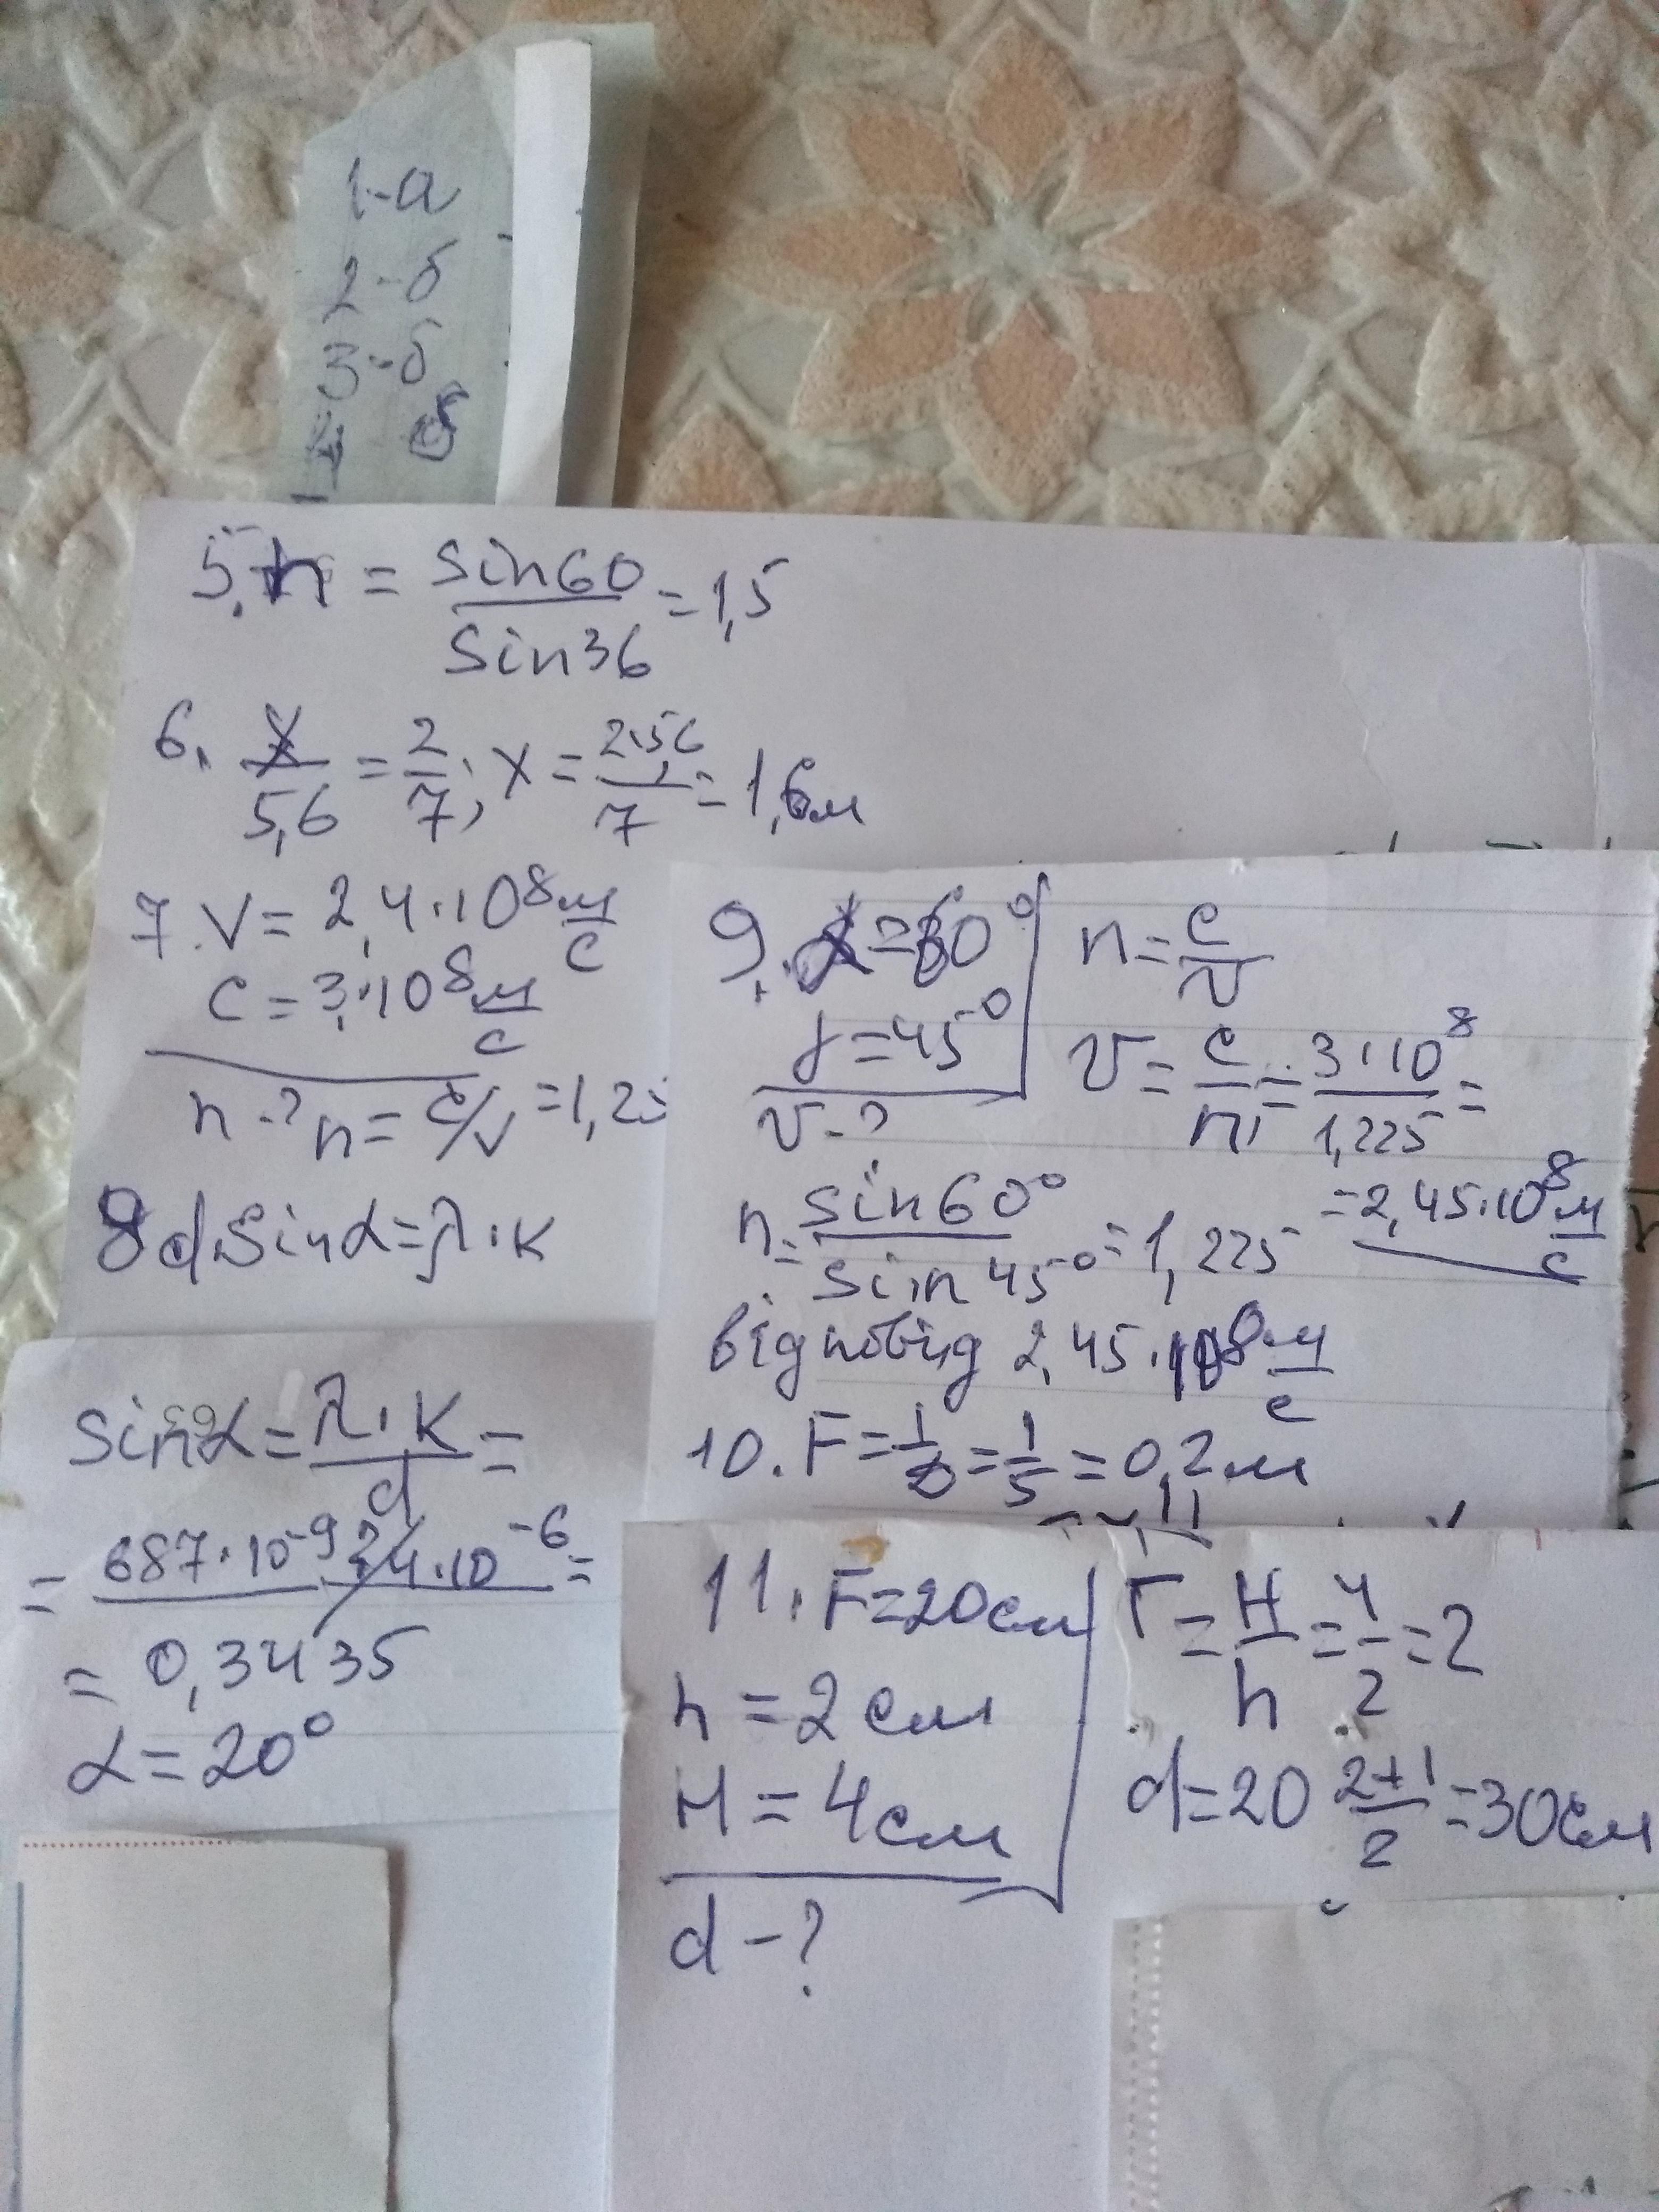 1-а
2-б
3-б
4 б
5. n = sin60 / sin36 = 1,5
6. x/5,6 = 2/7; x = 2·5,6/7 = 1,6м
7. V = 2,4·10⁸ м/с
c = 3·10⁸ м/с
n-? n = c/v = 1,25
8 d·sinα = λ·k
sinα = λ·k/d =
= 687·10⁻⁹·2/4·10⁻⁶ =
= 0,3435
α = 20°
9. α = 60°
γ = 45°
v-?
n = c/v
v = c/n = 3·10⁸/1,225 =
= 2,45·10⁸ м/с
n = sin60°/sin45° = 1,225
відповідд 2,45·10⁸ м/с
10. F = 1/D = 1/5 = 0,2м
11. F = 20см
h = 2см
H = 4см
d - ?
Г = H/h = 4/2 = 2
d = 20 2+1/2 = 30см